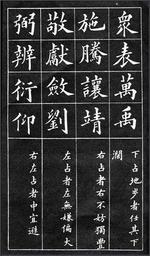 眾表萬禹
施騰讓靖
敬獻斂劉
弼辨衍仰
下占地步者任其下
濶
右占者右不妨獨豐
左占者左無嫌偏大
右左占者中宜遜